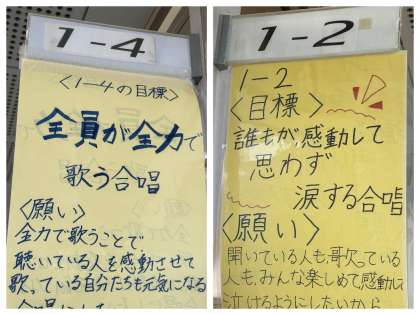 1-4
〈1-4の目標〉
全員が全力で
歌う合唱
〈願い〉
全力で歌うことで
聴いている人を感動させて
歌っている自分たちも元気になる
合唱にした
1-2
1-2
〈目標〉
誰もが感動して
思わず
涙する合唱
〈願い〉
聞いている人も歌っている
人も、みんな楽しめて感動して
泣けるようにしたいから